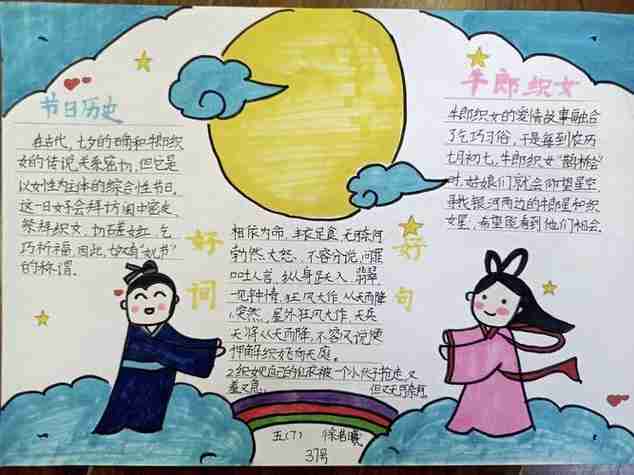 节日历史
在古代,七夕的
的传说关系密切,但它是
以女性为主体的综合性节日,
这一日女子会拜访闺中密友、
祭拜织女、切磋女红、乞
巧祈福。因此,
的称谓。
好词
相依为命、丰衣足食、无可奈何
勃然大怒、不容分说、
口吐人言、纵身跃入、
一见钟情、狂风大作、从天而降
突然,屋外狂风大作,天兵
天将从天而降,不容分说便
押解织女飞向天庭。
2.织女见自己的
又羞又急,但又无可奈何
好句
牛郎织女
牛郎织女的爱情故事融合
了乞巧习俗,于是每到农历
七月初七,牛郎织女“鹊桥会”
时,姑娘们就会仰望星空,
寻找银河两边的牛郎星和织
女星,希望能看到他们相会
五(7)
37号